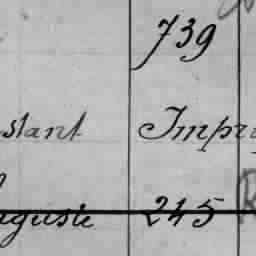 739
stant Impr
uguste 245